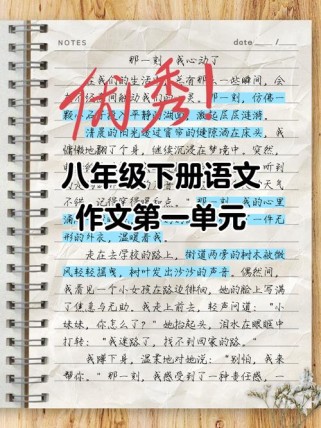 NOTES
date: /
那一刻,我心动了
在我们的生活
有那么一些瞬间,会
那一刻,仿佛一
颗小石子投入平静的湖面,激起层层涟漪。
清晨的阳光透过窗帘的缝隙洒在床头,我
慵懒地翻了个身,继续沉浸在梦境中。突然,
优秀!
八年级下册语文
作文第一单元
形的外衣,温暖着我。
走在去学校的路上,街道两旁的树木被微
风轻轻摇曳,树叶发出沙沙的声音。偶然间,
我看见一个小女孩在路边徘徊,她的脸上写满
了焦急与无助。我走上前去,轻声问道:“小
妹妹,你怎么了?”她抬起头,泪水在眼眶中
打转:“我迷路了,找不到回家的路。”
我蹲下身,温柔地对她说:“别怕,我来
帮你。”那一刻,我感受到了一种责任感,一